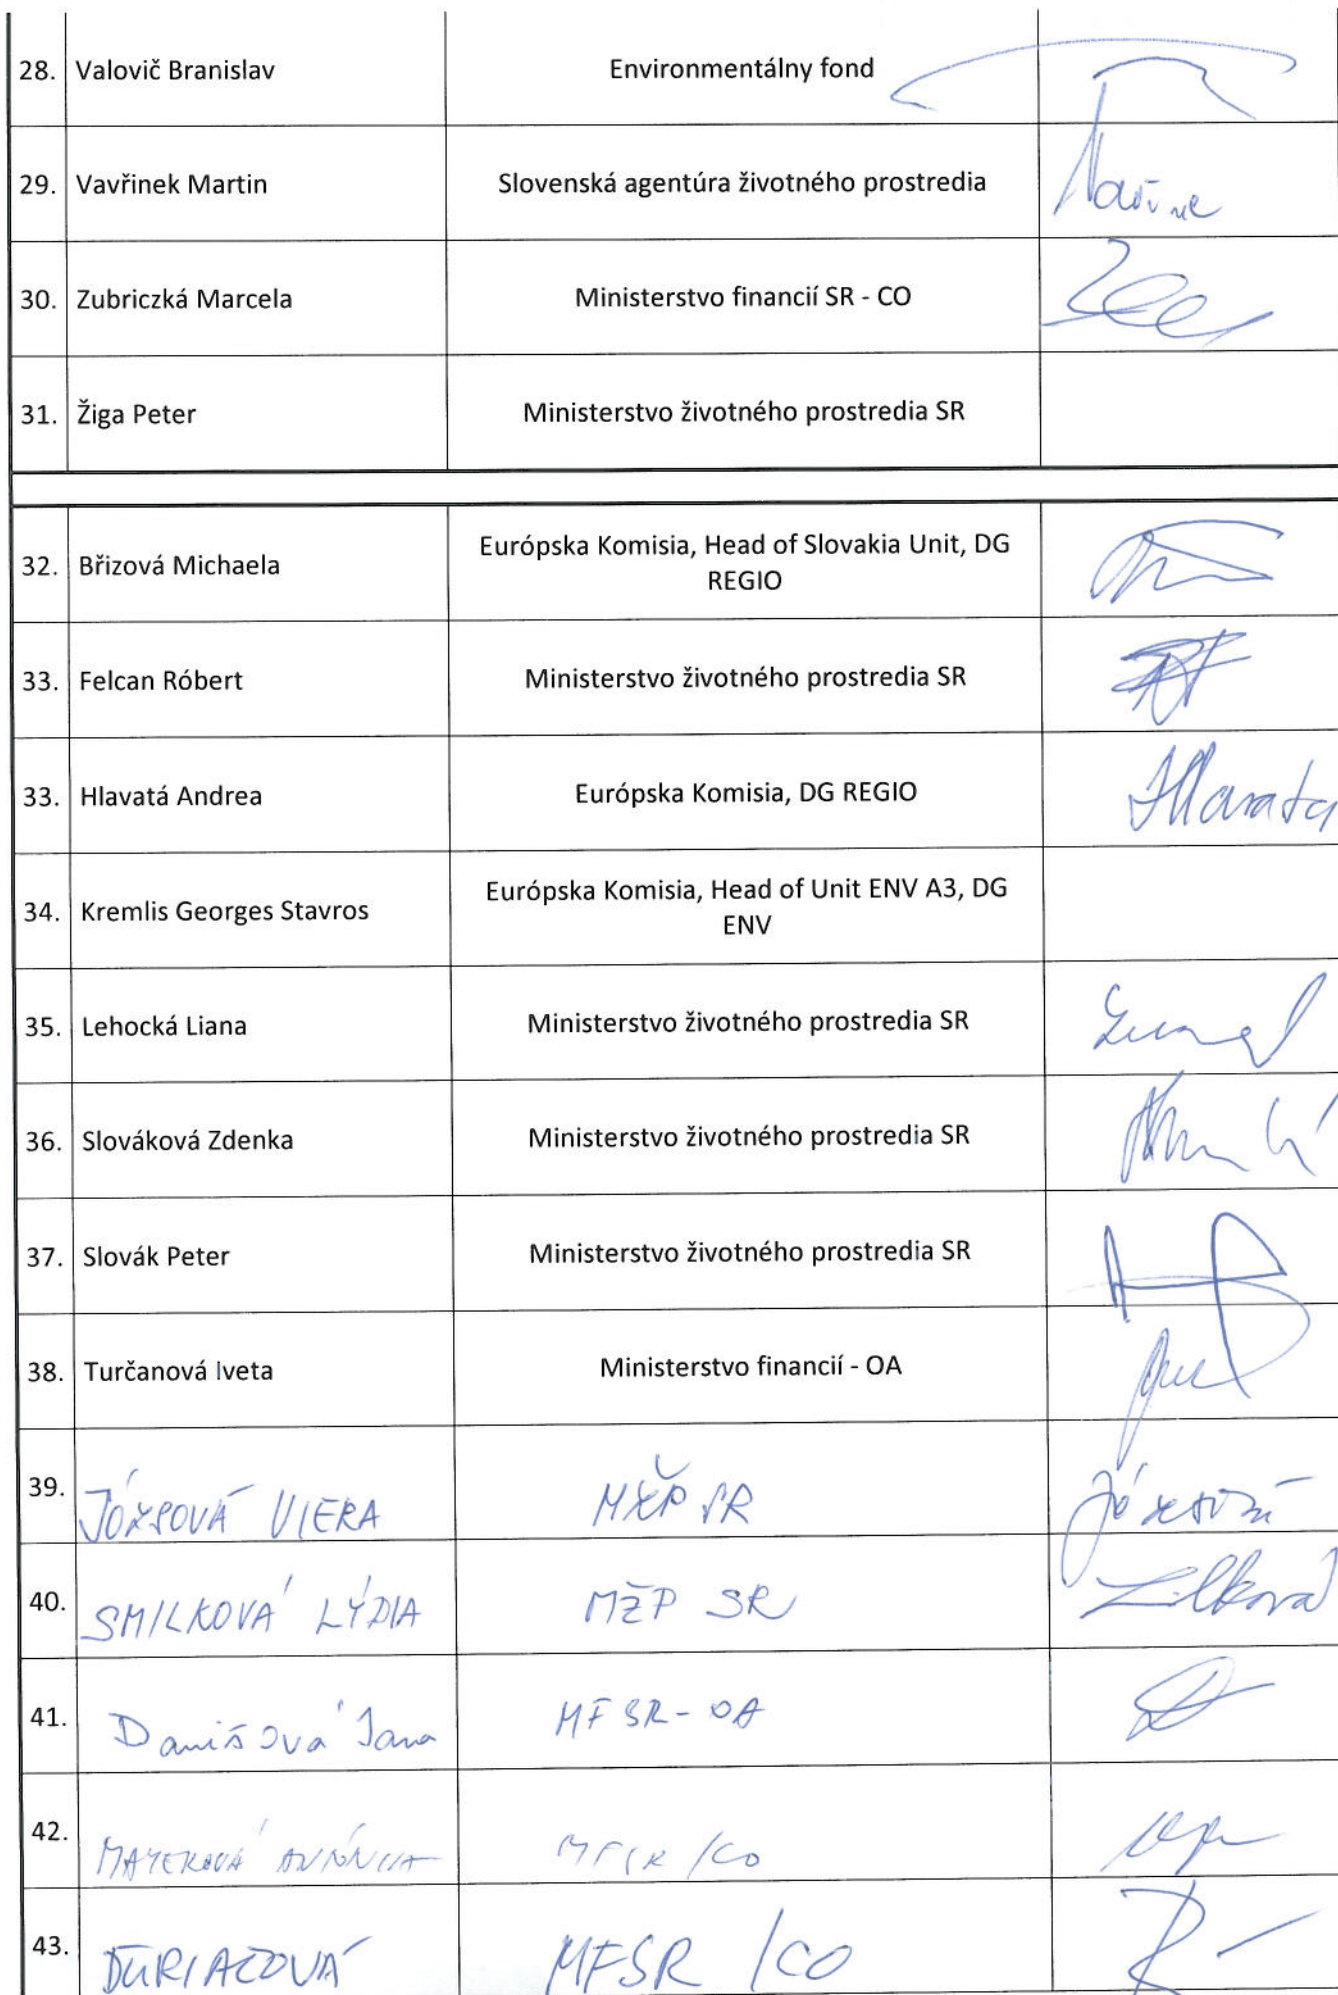 28. Valovič Branislav Environmentálny fond
29. Vavřinek Martin Slovenská agentúra životného prostredia
30. Zubriczká Marcela Ministerstvo financií SR - CO
31. Žiga Peter Ministerstvo životného prostredia SR
32. Břizová Michaela Európska Komisia, Head of Slovakia Unit, DG
REGIO
33. Felcan Róbert Ministerstvo životného prostredia SR
33. Hlavatá Andrea Európska Komisia, DG REGIO
34. Kremlis Georges Stavros Európska Komisia, Head of Unit ENV A3, DG
ENV
35. Lehocká Liana Ministerstvo životného prostredia SR
36. Slováková Zdenka Ministerstvo životného prostredia SR
37. Slovák Peter Ministerstvo životného prostredia SR
38. Turčanová Iveta Ministerstvo financií - OA
39. JÓZSOVÁ VIERA MŽP SR
40. SMILKOVÁ LÝDIA MŽP SR
41. Danišová Jana MF SR - OA
42. MAYEROVÁ ANTÓNIA MFSR /CO
43. ĎURIAČOVÁ MFSR /CO